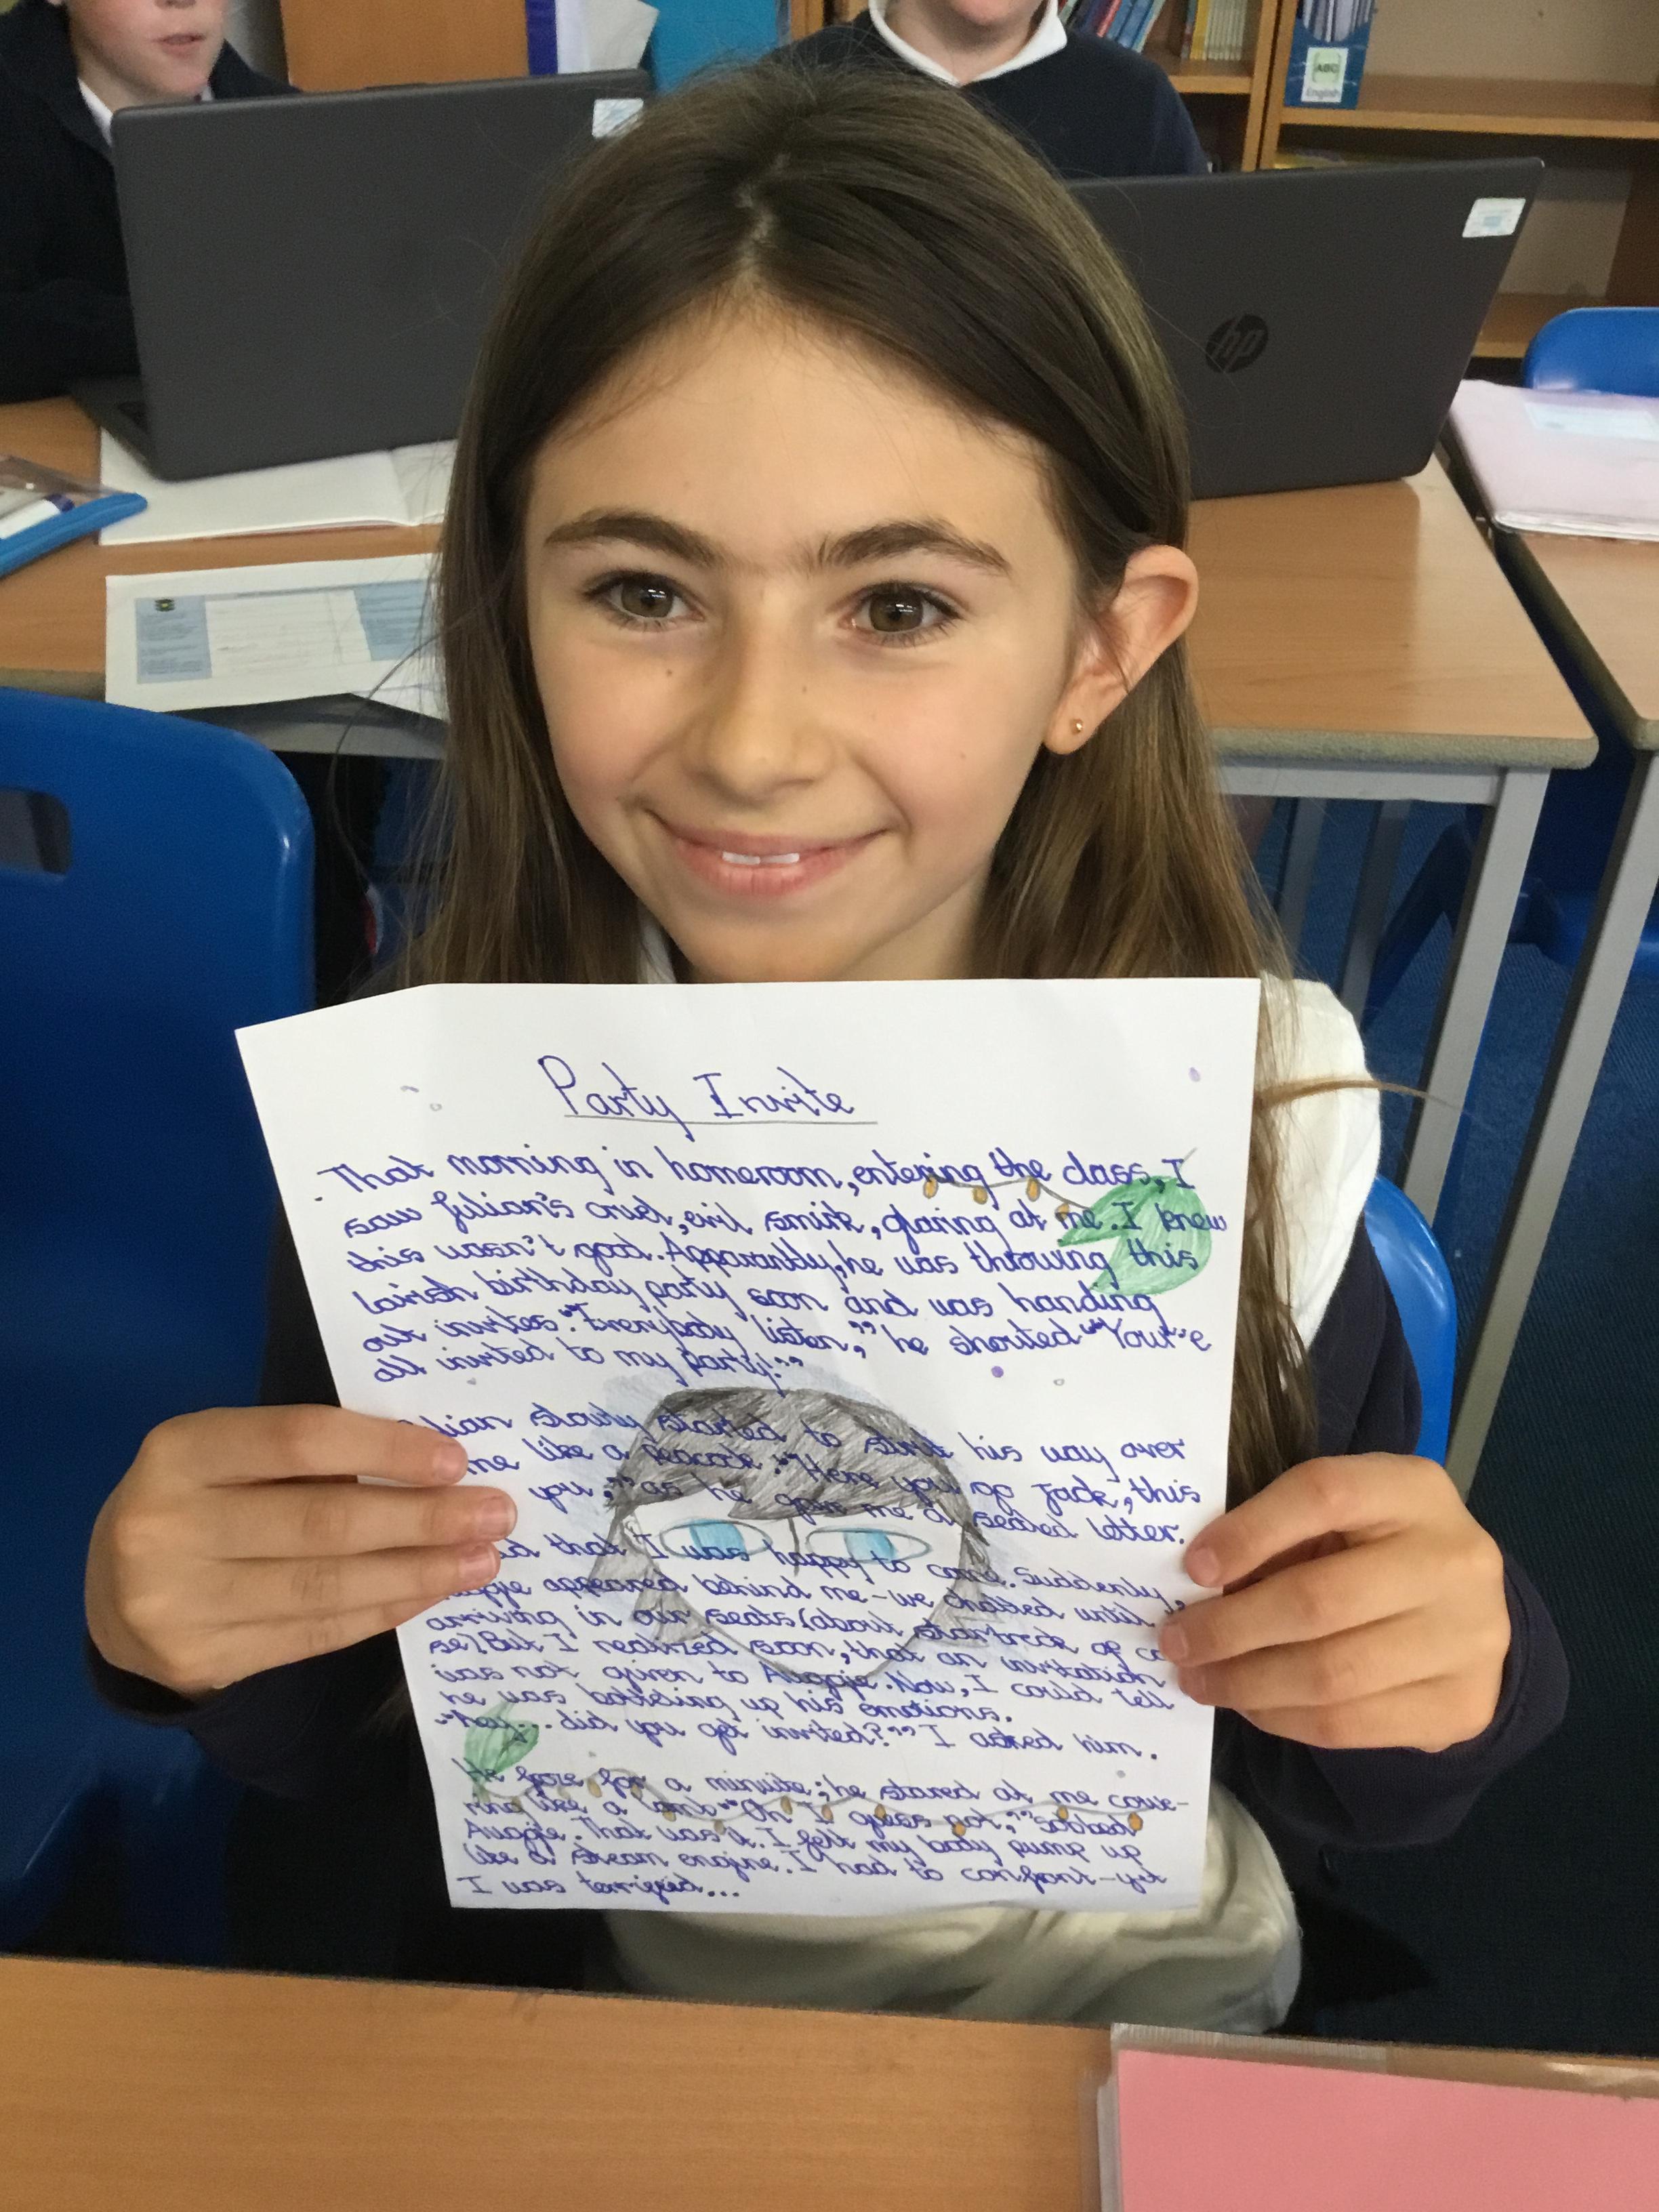 ABC
English
hp
Party Invite
That morning in homeroom, entering the class, I
saw Julian's cruel, evil smirk, glaring at me. I knew
this wasn't good. Apparantly, he was throwing this
lavish birthday party soon and was handing
out invites. "Everybody listen," he shouted "You're
all invited to my party!"
slowly started to strut his way over
me like a peacock: "Here you go Jack, this
you," as he gave me a sealed letter.
that I was happy to come. Suddenly,
appeared behind me-we chatted until
arriving in our seats (about startreck of co
se). But I realized soon, that an invitation
was not given to Auggie. Now, I could tell
he was bottling up his emotions.
"hey... did you get invited?" I asked him.
He froze for a minute; he stared at me cowe-
ring like a lamb "Oh I guess not," sobbed
Auggie. That was it. I felt my body pump up
like a steam engine. I had to confront-yet
I was terrified...